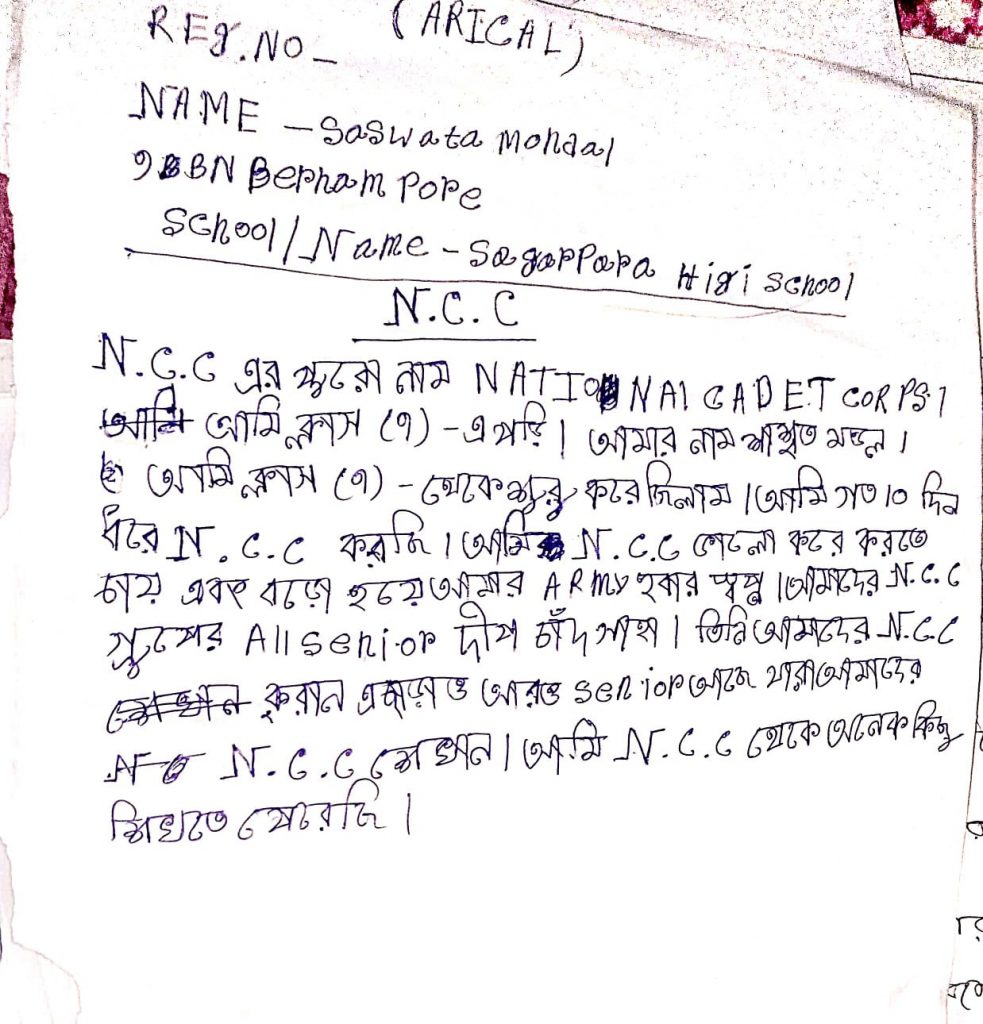 (ARICAL)
REg.NO –
NAME – Saswata Mondal
BN Berham Pore
School/Name – Sagarpara Higi School
N.C.C
N.C.C এর পুরো নাম NATIONAl CADET CORPS।
আমি ক্লাস (৭) - এ পড়ি। আমার নাম শাশ্বত মন্ডল।
আমি ক্লাস (৭) - থেকে শুরু করেছিলাম। আমি গত 10 দিন
ধরে N.C.C করছি। আমি N.C.C ভালো করে করতে
চায় এবং বড়ো হয়ে আমার ARMY হবার স্বপ্ন। আমাদের N.C.C
গ্রুপের All senior দীপ চাঁদ সাহা। তিনি আমাদের N.C.C
করান এছাড়াও আরও senior আছে যারা আমাদের
N.C.C শেখান। আমি N.C.C থেকে অনেক কিছু
শিখতে পেরেছি।